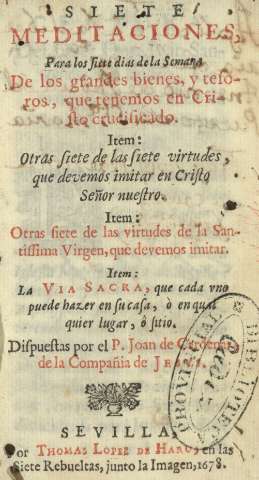 SIETE
MEDITACIONES,
Para los siete dias de la Semana
De los grandes bienes, y teso-
ros, que tenemos en Cri-
sto crucificado.
Item:
Otras siete de las siete virtudes,
que devemos imitar en Cristo
Señor nuestro.
Item:
Otras siete de las virtudes de la San-
tissima Virgen, que devemos imitar.
Item:
LA VIA SACRA, que cada vno
puede hazer en su casa, ò en qual
quier lugar, ò sitio.
Dispuestas por el P. Joan de Cardenas
de la Compañia de JESUS.
SEVILLA,
Por THOMAS LOPEZ DE HARO, en las
Siete Rebueltas, junto la Imagen, 1678.
BIBLIOTECA
PROVINCIAL